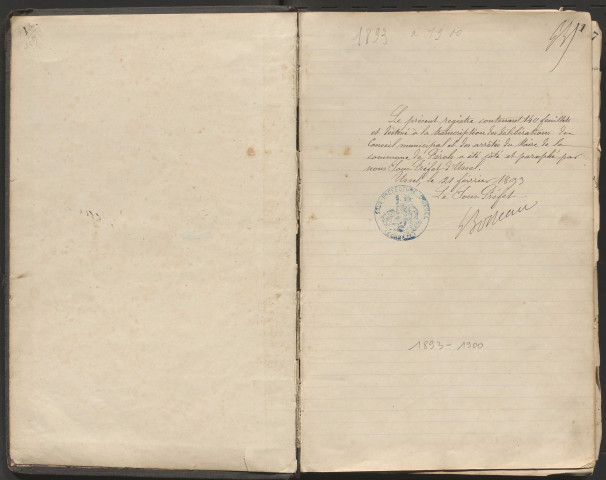 1893 à 1900
Le présent registre contenant 140 feuillets
et destiné à la transcription des délibérations du
Conseil municipal et des arrêtés du Maire de la
commune de Pérols a été coté et paraphé par
nous Sous Préfet d'Ussel.
Ussel, le 21 février 1893
Le Sous Préfet
1893-1900